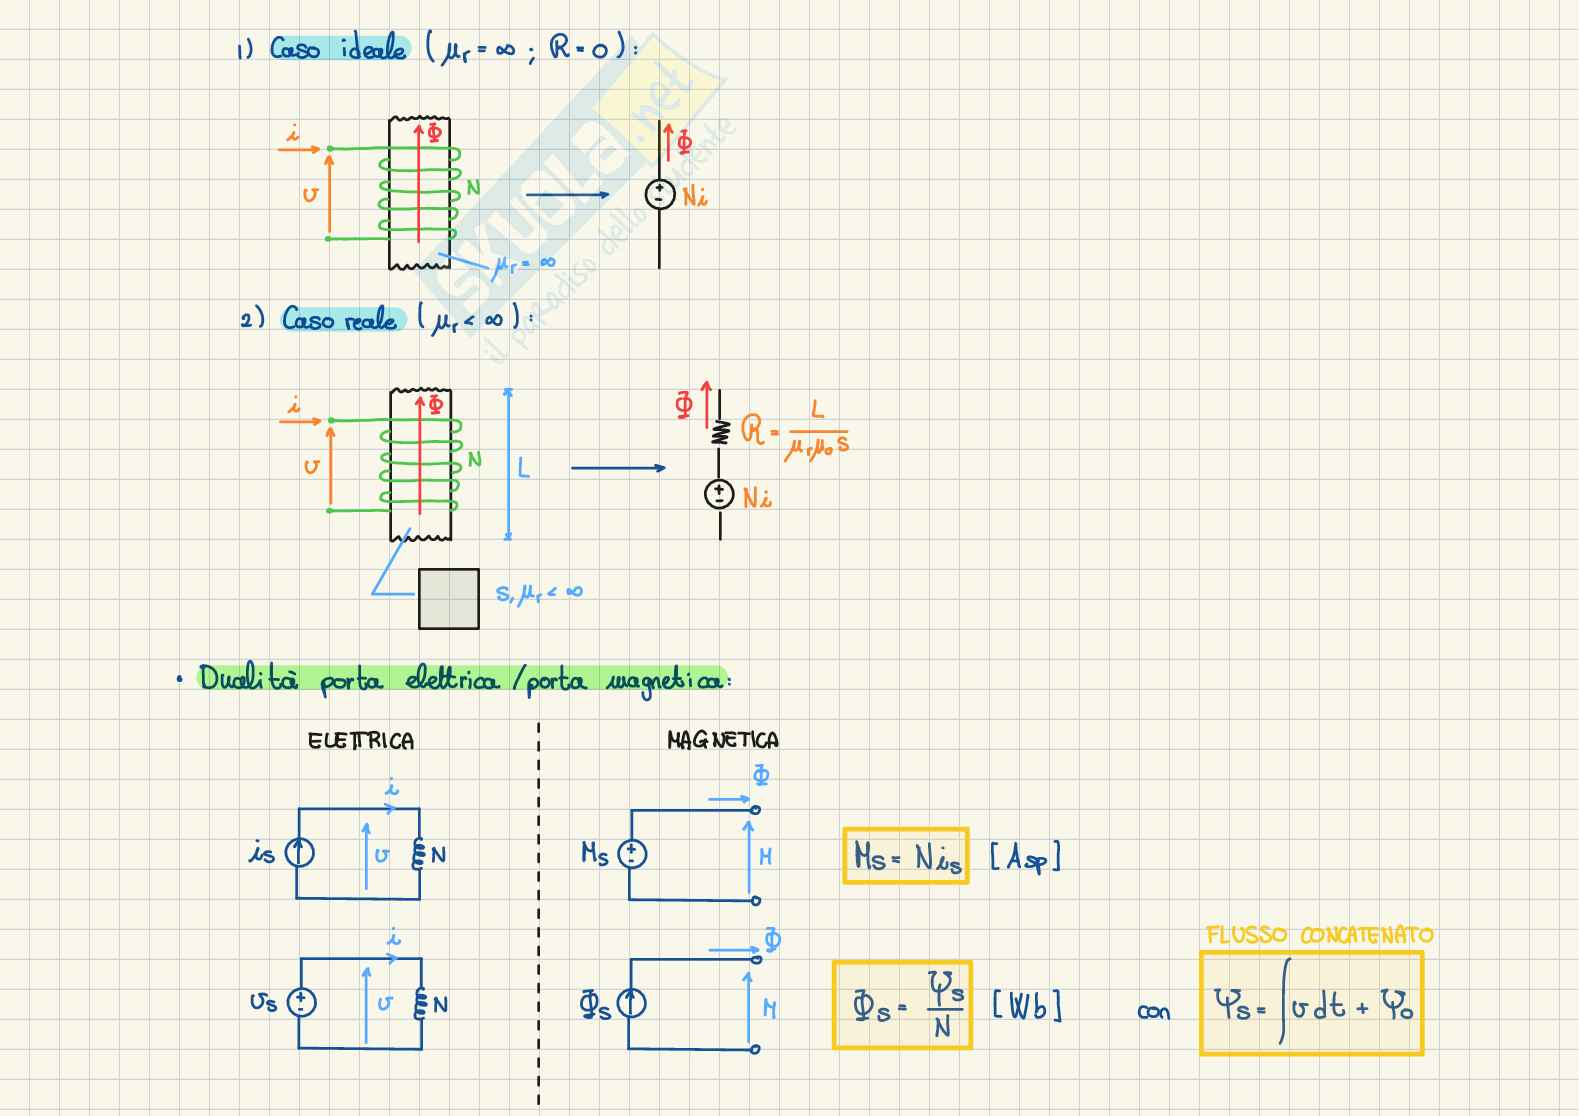 1) Caso ideale (μr = ∞ ; R = 0):
i
Φ
υ
N
Φ
Ni
μr = ∞
SKUOLA.net
il paradiso dello studente
2) Caso reale (μr < ∞):
i
Φ
υ
N
L
Φ
R = L / μrμ₀S
Ni
S, μr < ∞
• Dualità porta elettrica / porta magnetica:
ELETTRICA
MAGNETICA
i
is
υ
N
Φ
Ms
M
Ms = Nis [Asp]
i
υs
υ
N
Φ
Φs
M
Φs = Ψs / N [Wb] con
FLUSSO CONCATENATO
Ψs = ∫ υ dt + Ψ₀